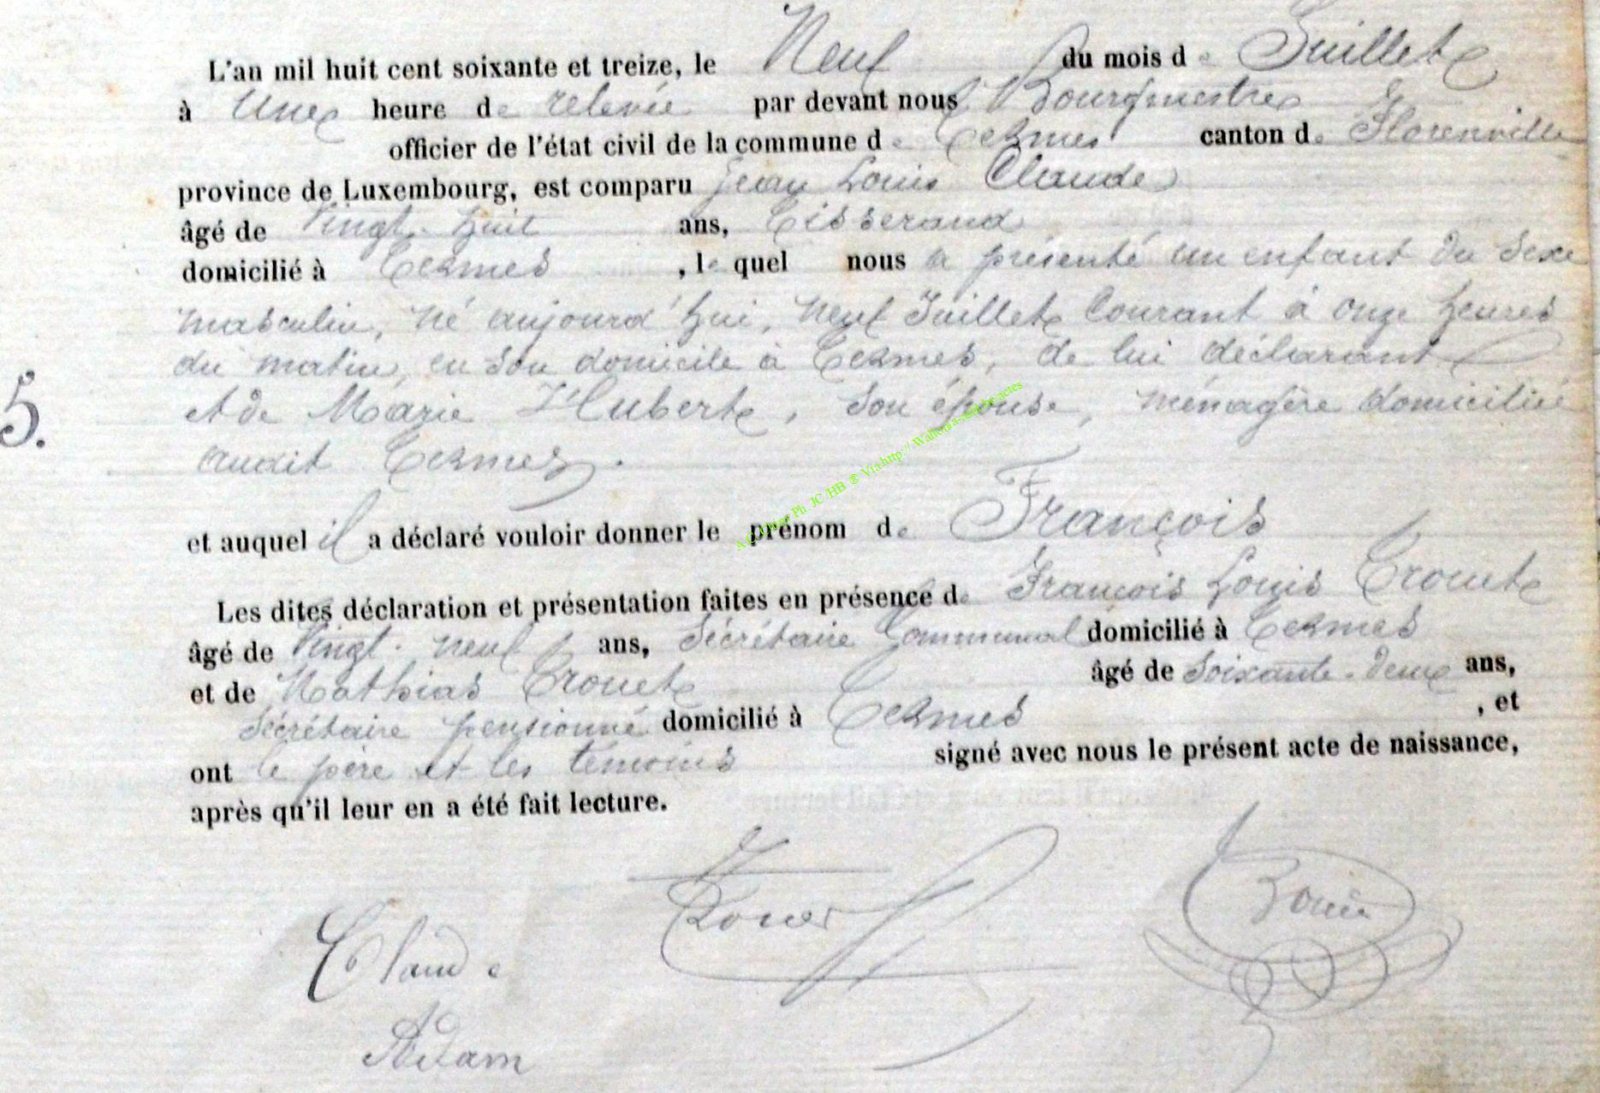 L'an mil huit cent soixante et treize, le Neuf du mois de Juillet
à Une heure de relevée par devant nous Bourgmestre
officier de l'état civil de la commune de Termes canton de Florenville
province de Luxembourg, est comparu Jean Louis Claude
âgé de Vingt-huit ans, Tisserand
domicilié à Termes, le quel nous a présenté un enfant du Sexe
masculin, né aujourd'hui, neuf Juillet Courant à onze heures
du matin, en Son domicile à Termes, de lui déclarant
5. et de Marie Hubert, Son épouse, ménagère domiciliée
audit Termes.
et auquel il a déclaré vouloir donner le prénom de François
Les dites déclaration et présentation faites en présence de François Louis Trouet
âgé de Vingt-neuf ans, Secrétaire Communal domicilié à Termes
et de Mathias Trouet âgé de Soixante-deux ans,
Secrétaire pensionné domicilié à Termes, et
ont le père et les témoins signé avec nous le présent acte de naissance,
après qu'il leur en a été fait lecture.
Claude
Adam